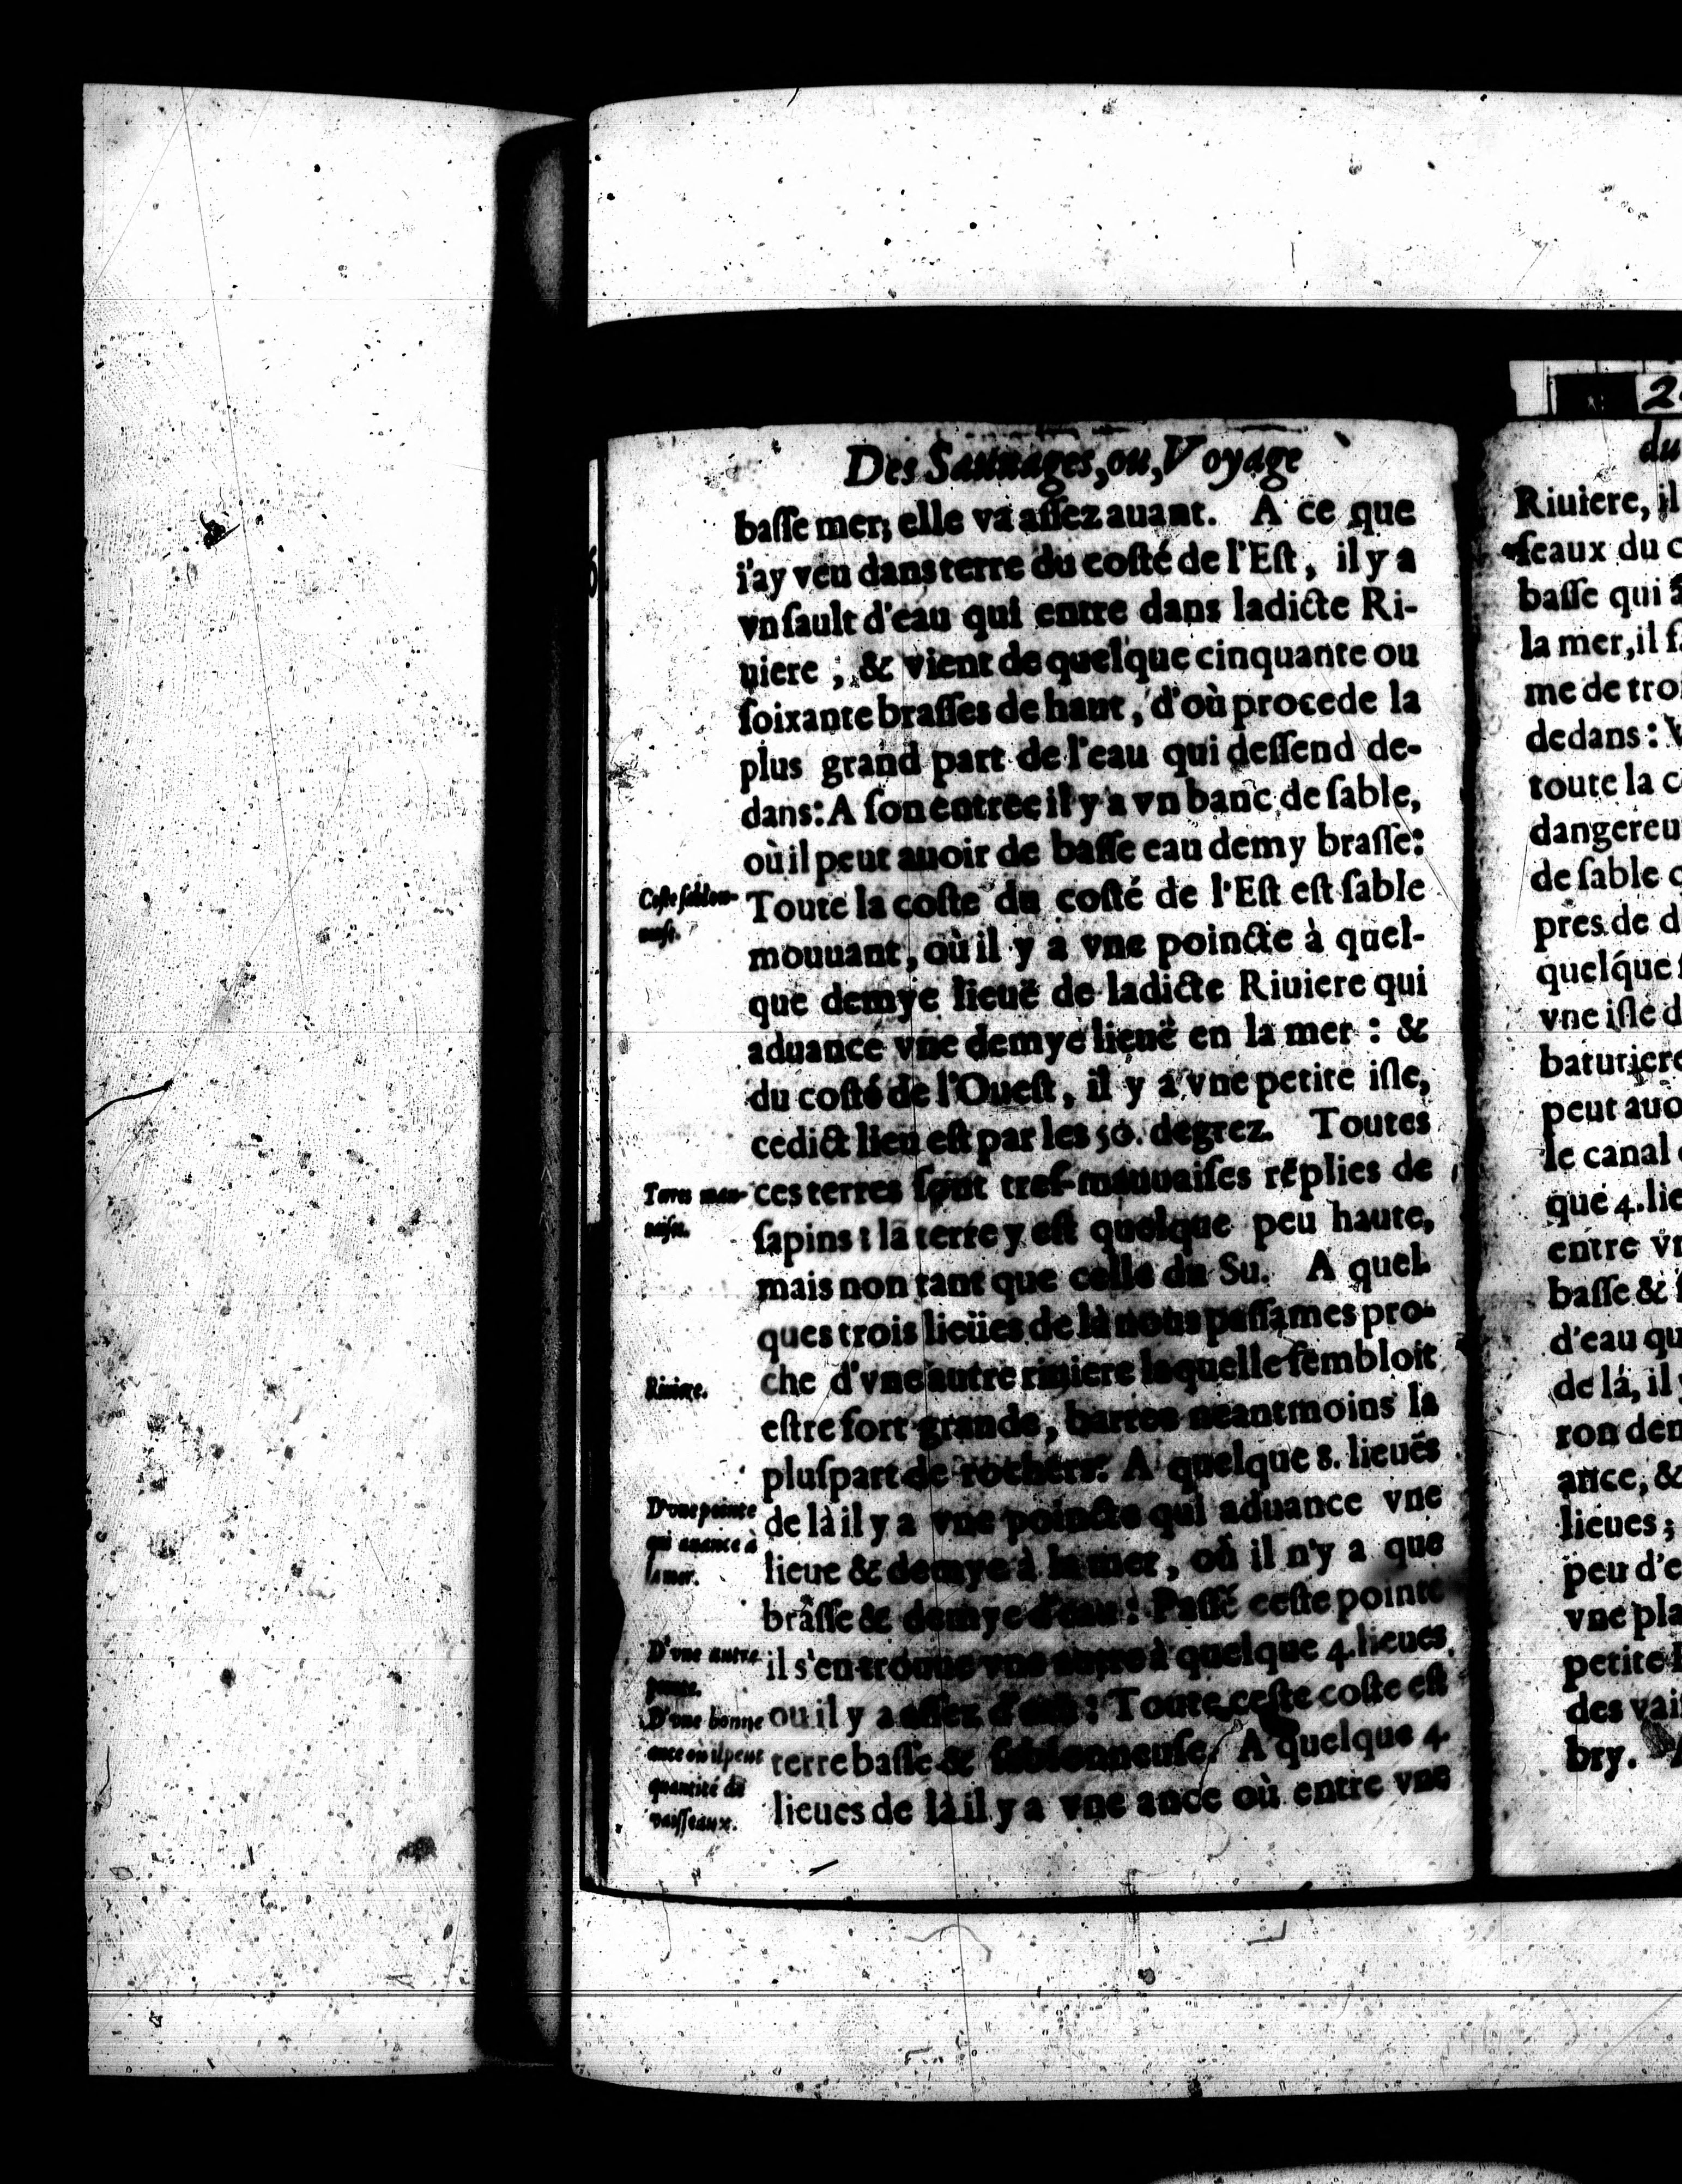 Des Sauuages, ou, Voyage
basse mer; elle va assez auant. A ce que
i'ay veu dans terre du costé de l'Est, il y a
vn sault d'eau qui entre dans ladicte Ri-
uiere ; & vient de quelque cinquante ou
soixante brasses de haut, d'où procede la
plus grand part de l'eau qui dessend de-
dans: A son entree il y a vn banc de sable,
où il peut auoir de basse eau demy brasse:
Coste sablon-
neuse.
Toute la coste du costé de l'Est est sable
mouuant, où il y a vne poincte à quel-
que demye lieuë de ladicte Riuiere qui
aduance vne demye lieuë en la mer : &
du costé de l'Ouest, il y a vne petite isle,
cedict lieu est par les 50. degrez. Toutes
Terres mau-
uaises.
ces terres sont tres-mauuaises rēplies de
sapins : la terre y est quelque peu haute,
mais non tant que celle du Su. A quel-
ques trois lieües de là nous passames pro-
Riuiere.
che d'vne autre riuiere laquelle sembloit
estre fort grande, barree neantmoins la
pluspart de rochers: A quelque 8. lieuës
D'vne pointe
qui auance à
la mer.
de là il y a vne poincte qui aduance vne
lieue & demye à la mer, où il n'y a que
brasse & demye d'eau : Passé ceste pointe
D'vne autre
pointe.
il s'en trouue vne autre à quelque 4. lieues
ou il y a assez d'eau : Toute ceste coste est
D'vne bonne
ance où il peut
quantité de
vaisseaux.
terre basse & sablonneuse. A quelque 4.
lieues de là il y a vne ance où entre vne
du
Riuiere, il
seaux du c
basse qui
la mer, il f
me de troi
dedans:
toute la c
dangereu
de sable
pres de d
quelque
vne isle d
baturiere
peut auo
le canal
que 4. lie
entre vn
basse &
d'eau qu
de là, il
ron dem
ance, &
lieues;
peu d'e
vne pla
petite
des vai
bry.